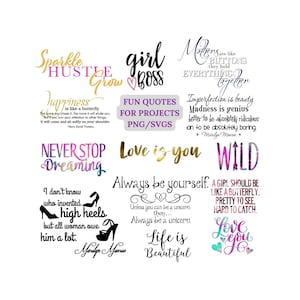 Sparkle
HUSTLE
Grow
girl
BOSS
Mothers are like
BUTTONS
they hold
EVERYTHING
together
happiness
is like a butterfly
FUN QUOTES
FOR PROJECTS
PNG/SVGS
Imperfection is beauty
Madness is genius
better to be absolutely ridiculous
than to be absolutely boring
Marilyn Monroe
NEVER STOP
Dreaming
Love is you
WILD
I don't know
who invented
high heels
but all woman owe
him a lot.
Marilyn Monroe
Always be yourself.
Unless you can be a unicorn
then...
Always be a unicorn
Life is
Beautiful
A GIRL SHOULD BE
LIKE A BUTTERFLY,
PRETTY TO SEE,
HARD TO CATCH.
Love
you